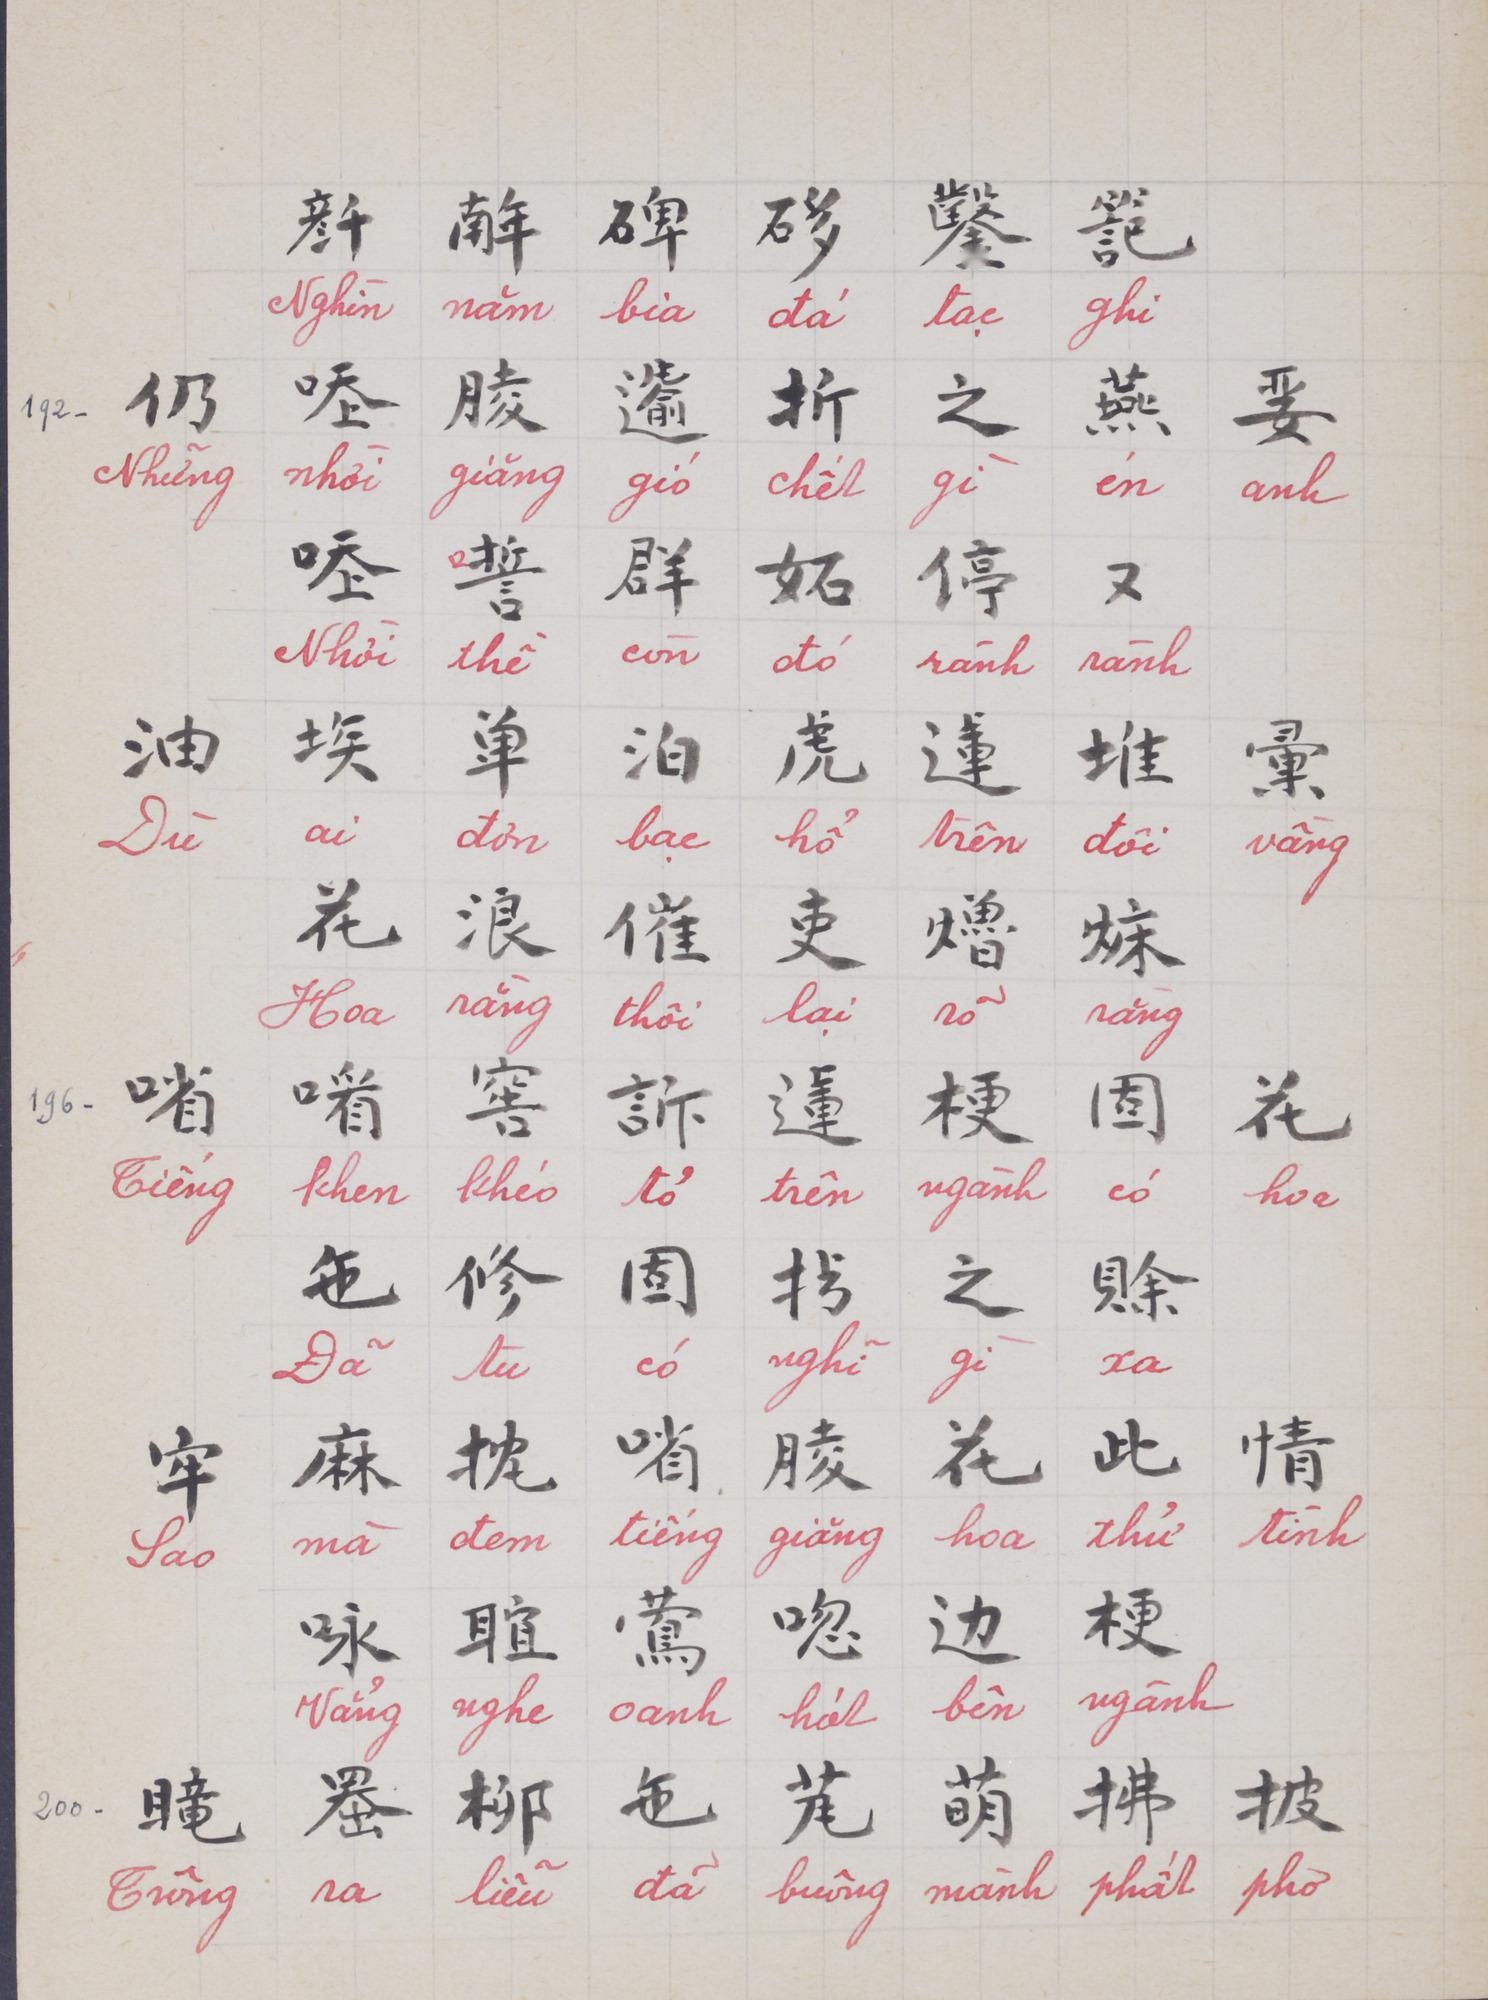 𠦳 𢆥 碑 𥒥 鑿 𥱬
Nghìn năm bia đá tạc ghi
192- 仍 𠳒 𦝄 𨗺 折 之 燕 𡞕
Những nhời giăng gió chết gì én anh
𠳒 誓 群 妬 停 又
Nhời thề còn đó rành rành
油 埃 单 泊 虎 𨕭 堆 彙
Dù ai đơn bạc hổ trên đôi vầng
花 浪 催 吏 𤏣 𤇥
Hoa rằng thôi lại rõ ràng
196- 㗂 𠸦 窖 訴 𨕭 梗 固 花
Tiếng khen khéo tỏ trên ngành có hoa
㐌 修 固 𢪀 之 賒
Đã tu có nghĩ gì xa
牢 麻 抌 㗂 𦝄 花 此 情
Sao mà đem tiếng giăng hoa thử tình
咏 𦖑 鶯 唿 边 梗
Vẳng nghe oanh hót bên ngành
200- 𥉫 𠚢 柳 㐌 𦭷 萌 拂 披
Trông ra liễu đã buông mành phất phơ